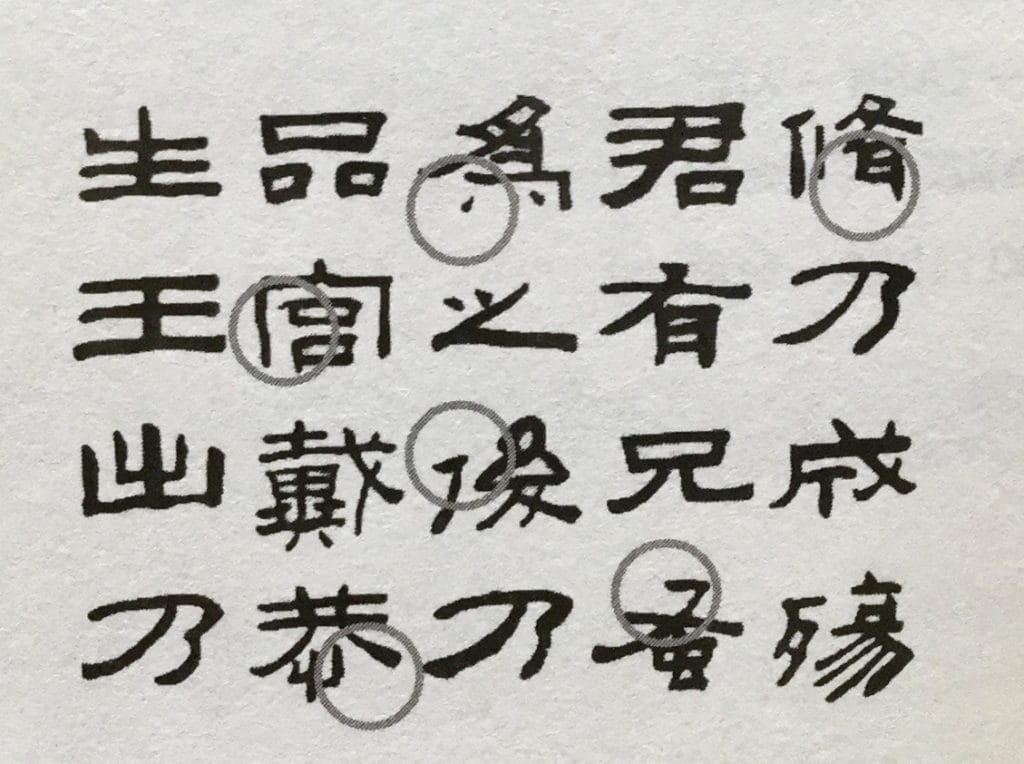 脩乃成殤
君有兄蚤
爲之後乃
品宮戴恭
生王出乃